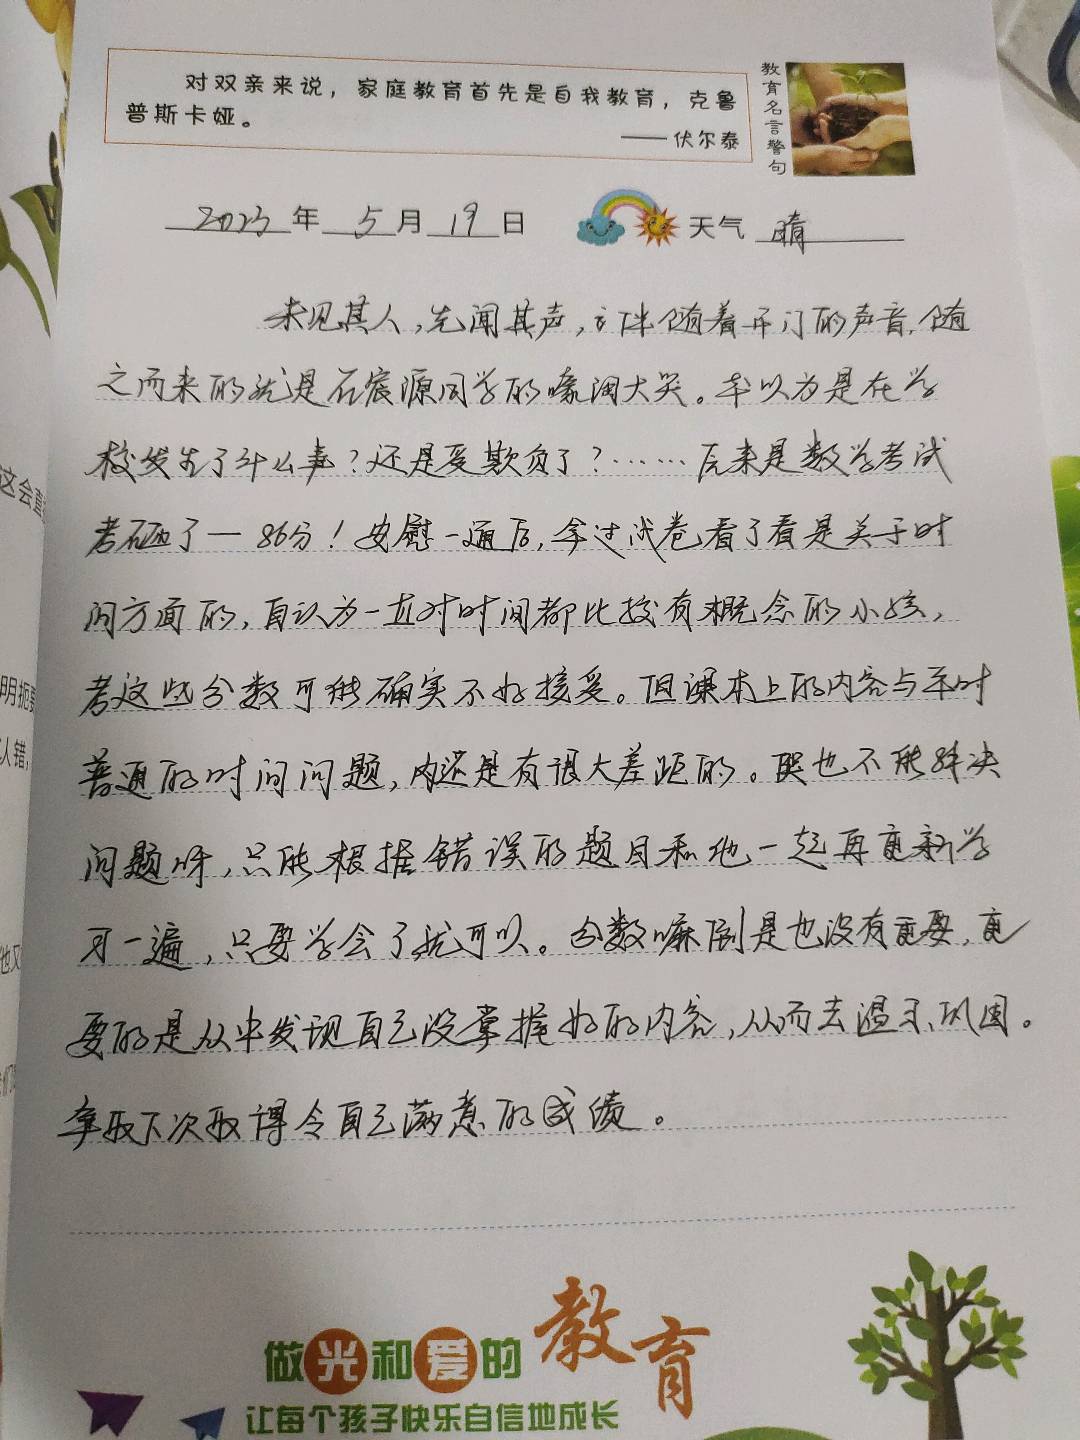 对双亲来说，家庭教育首先是自我教育，克鲁
普斯卡娅。
——伏尔泰
教育名言警句
2023年5月19日 天气 晴
未见其人，先闻其声，伴随着开门的声音，随
之而来的就是石宸源同学的嚎淘大哭。本以为是在学
校发生了什么事？还是受欺负了？……后来是数学考试
考砸了—86分！安慰一通后，拿过试卷看了看是关于时
间方面的，自认为一直对时间都比较有概念的小孩，
考这些分数可能确实不好接受。但课本上的内容与平时
普通的时间问题，内还是有很大差距的。哭也不能解决
问题呀，只能根据错误的题目和他一起再重新学
习一遍，只要学会了就可以。分数嘛倒是也没有重要，重
要的是从中发现自己没掌握好的内容，从而去温习、巩固。
争取下次取得令自己满意的成绩。
做光和爱的教育
让每个孩子快乐自信地成长
这会直
明扼要
人错，
他又